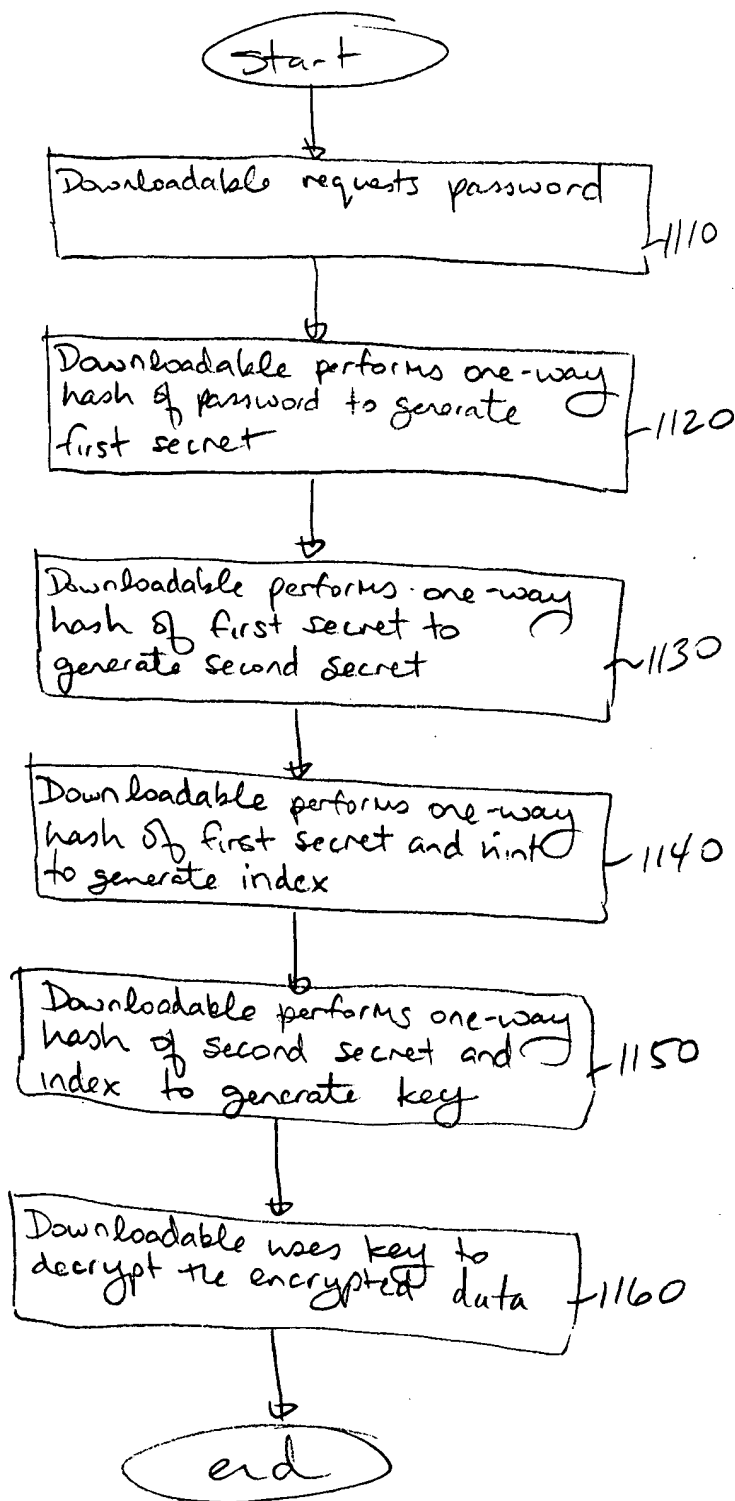 Start
Downloadable requests password
1110
Downloadable performs one-way
hash of password to generate
first secret
1120
Downloadable performs one-way
hash of first secret to
generate second secret
1130
Downloadable performs one-way
hash of first secret and hint
to generate index
1140
Downloadable performs one-way
hash of second secret and
index to generate key
1150
Downloadable uses key to
decrypt the encrypted data
1160
end